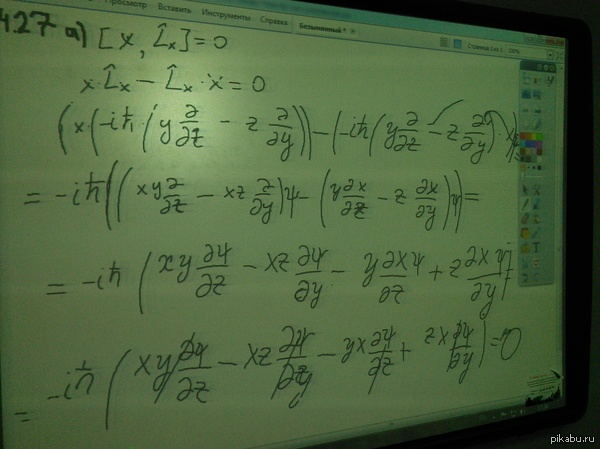 Просмотр Вставить Инструменты Справка
Безымянный *
427 а) [x, L̂x] = 0
x·L̂x − L̂x·x = 0
(x(-iħ(y ∂/∂z − z ∂/∂y)) − (-iħ(y ∂/∂z − z ∂/∂y)·x)
= -iħ((xy ∂/∂z − xz ∂/∂y)ψ − (y ∂x/∂z − z ∂x/∂y)ψ) =
= -iħ(xy ∂ψ/∂z − xz ∂ψ/∂y − y ∂xψ/∂z + z ∂xψ/∂y) =
= -iħ(xy ∂ψ/∂z − xz ∂ψ/∂y − yx ∂ψ/∂z + zx ∂ψ/∂y) = 0
pikabu.ru